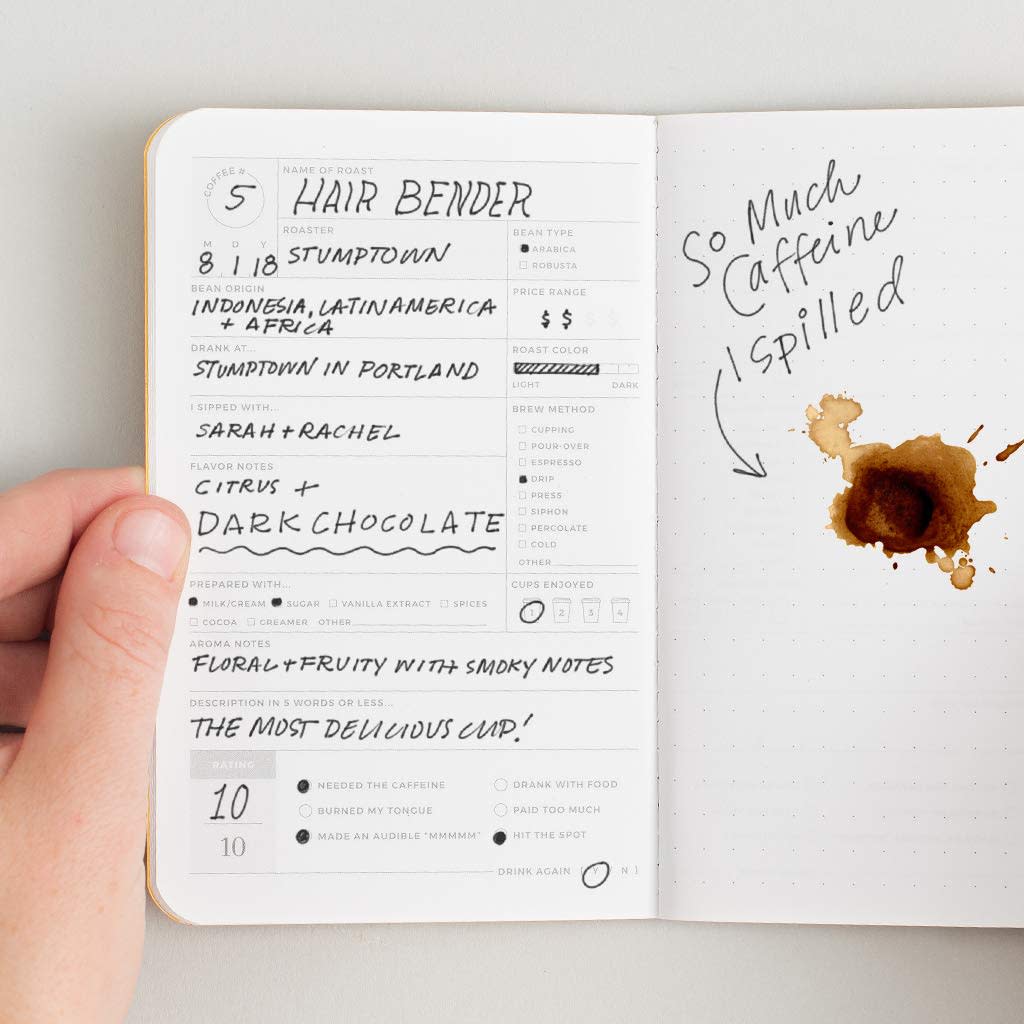 COFFEE #
5
NAME OF ROAST
HAIR BENDER
M D Y
8 1 18
ROASTER
STUMPTOWN
BEAN TYPE
ARABICA
ROBUSTA
BEAN ORIGIN
INDONESIA, LATIN AMERICA
+ AFRICA
PRICE RANGE
$ $ $ $
DRANK AT...
STUMPTOWN IN PORTLAND
ROAST COLOR
LIGHT DARK
I SIPPED WITH...
SARAH + RACHEL
BREW METHOD
CUPPING
POUR-OVER
ESPRESSO
DRIP
PRESS
SIPHON
PERCOLATE
COLD
OTHER
FLAVOR NOTES
CITRUS +
DARK CHOCOLATE
PREPARED WITH...
MILK/CREAM SUGAR VANILLA EXTRACT SPICES
COCOA CREAMER OTHER
CUPS ENJOYED
1 2 3 4
AROMA NOTES
FLORAL + FRUITY WITH SMOKY NOTES
DESCRIPTION IN 5 WORDS OR LESS...
THE MOST DELICIOUS CUP!
RATING
10
10
NEEDED THE CAFFEINE
BURNED MY TONGUE
MADE AN AUDIBLE "MMMMM"
DRANK WITH FOOD
PAID TOO MUCH
HIT THE SPOT
DRINK AGAIN ( Y / N )
So Much
Caffeine
I spilled